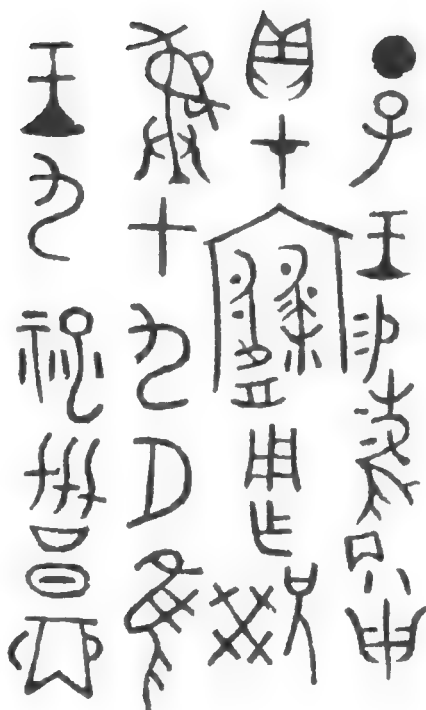 丁巳王易
貝才寢用乍兄癸
彝才九月隹
王九祀劦日丙